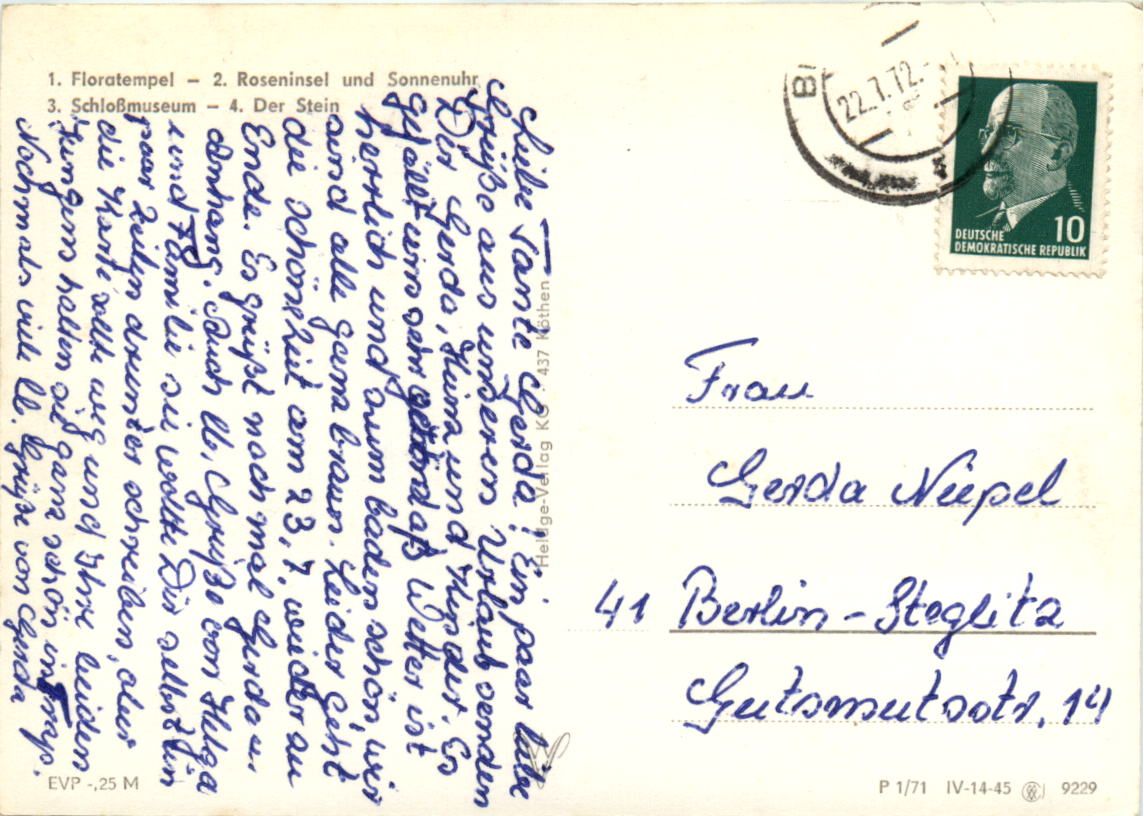 1. Floratempel – 2. Roseninsel und Sonnenuhr
3. Schloßmuseum – 4. Der Stein
Liebe Tante Gerda! Ein paar liebe
Grüße aus unseren Urlaub senden
Dir Gerda, und Kinder. Es
gefällt uns sehr daß Wetter ist
herrlich und zum baden schön, wir
sind alle ganz braun. Leider geht
die schöne Zeit am 23.7. wieder zu
Ende. Es grüßt nochmal Gerda u.
Anhang. Auch lb. Grüße von Helga
und Familie sie wollte Dir selbst ein
paar Zeilen drunter schreiben, aber
die Karte sollte weg und ihre beiden
Jungens halten sie ganz schön in Trap.
Nochmals viele lb. Grüße von Gerda
Heldge-Verlag KG · 437 Köthen
22.7.72.-
DEUTSCHE
DEMOKRATISCHE REPUBLIK 10
Frau
Gerda Niepel
41 Berlin-Steglitz
Gutsmutsstr. 14
EVP -,25 M
P 1/71 IV-14-45 9229